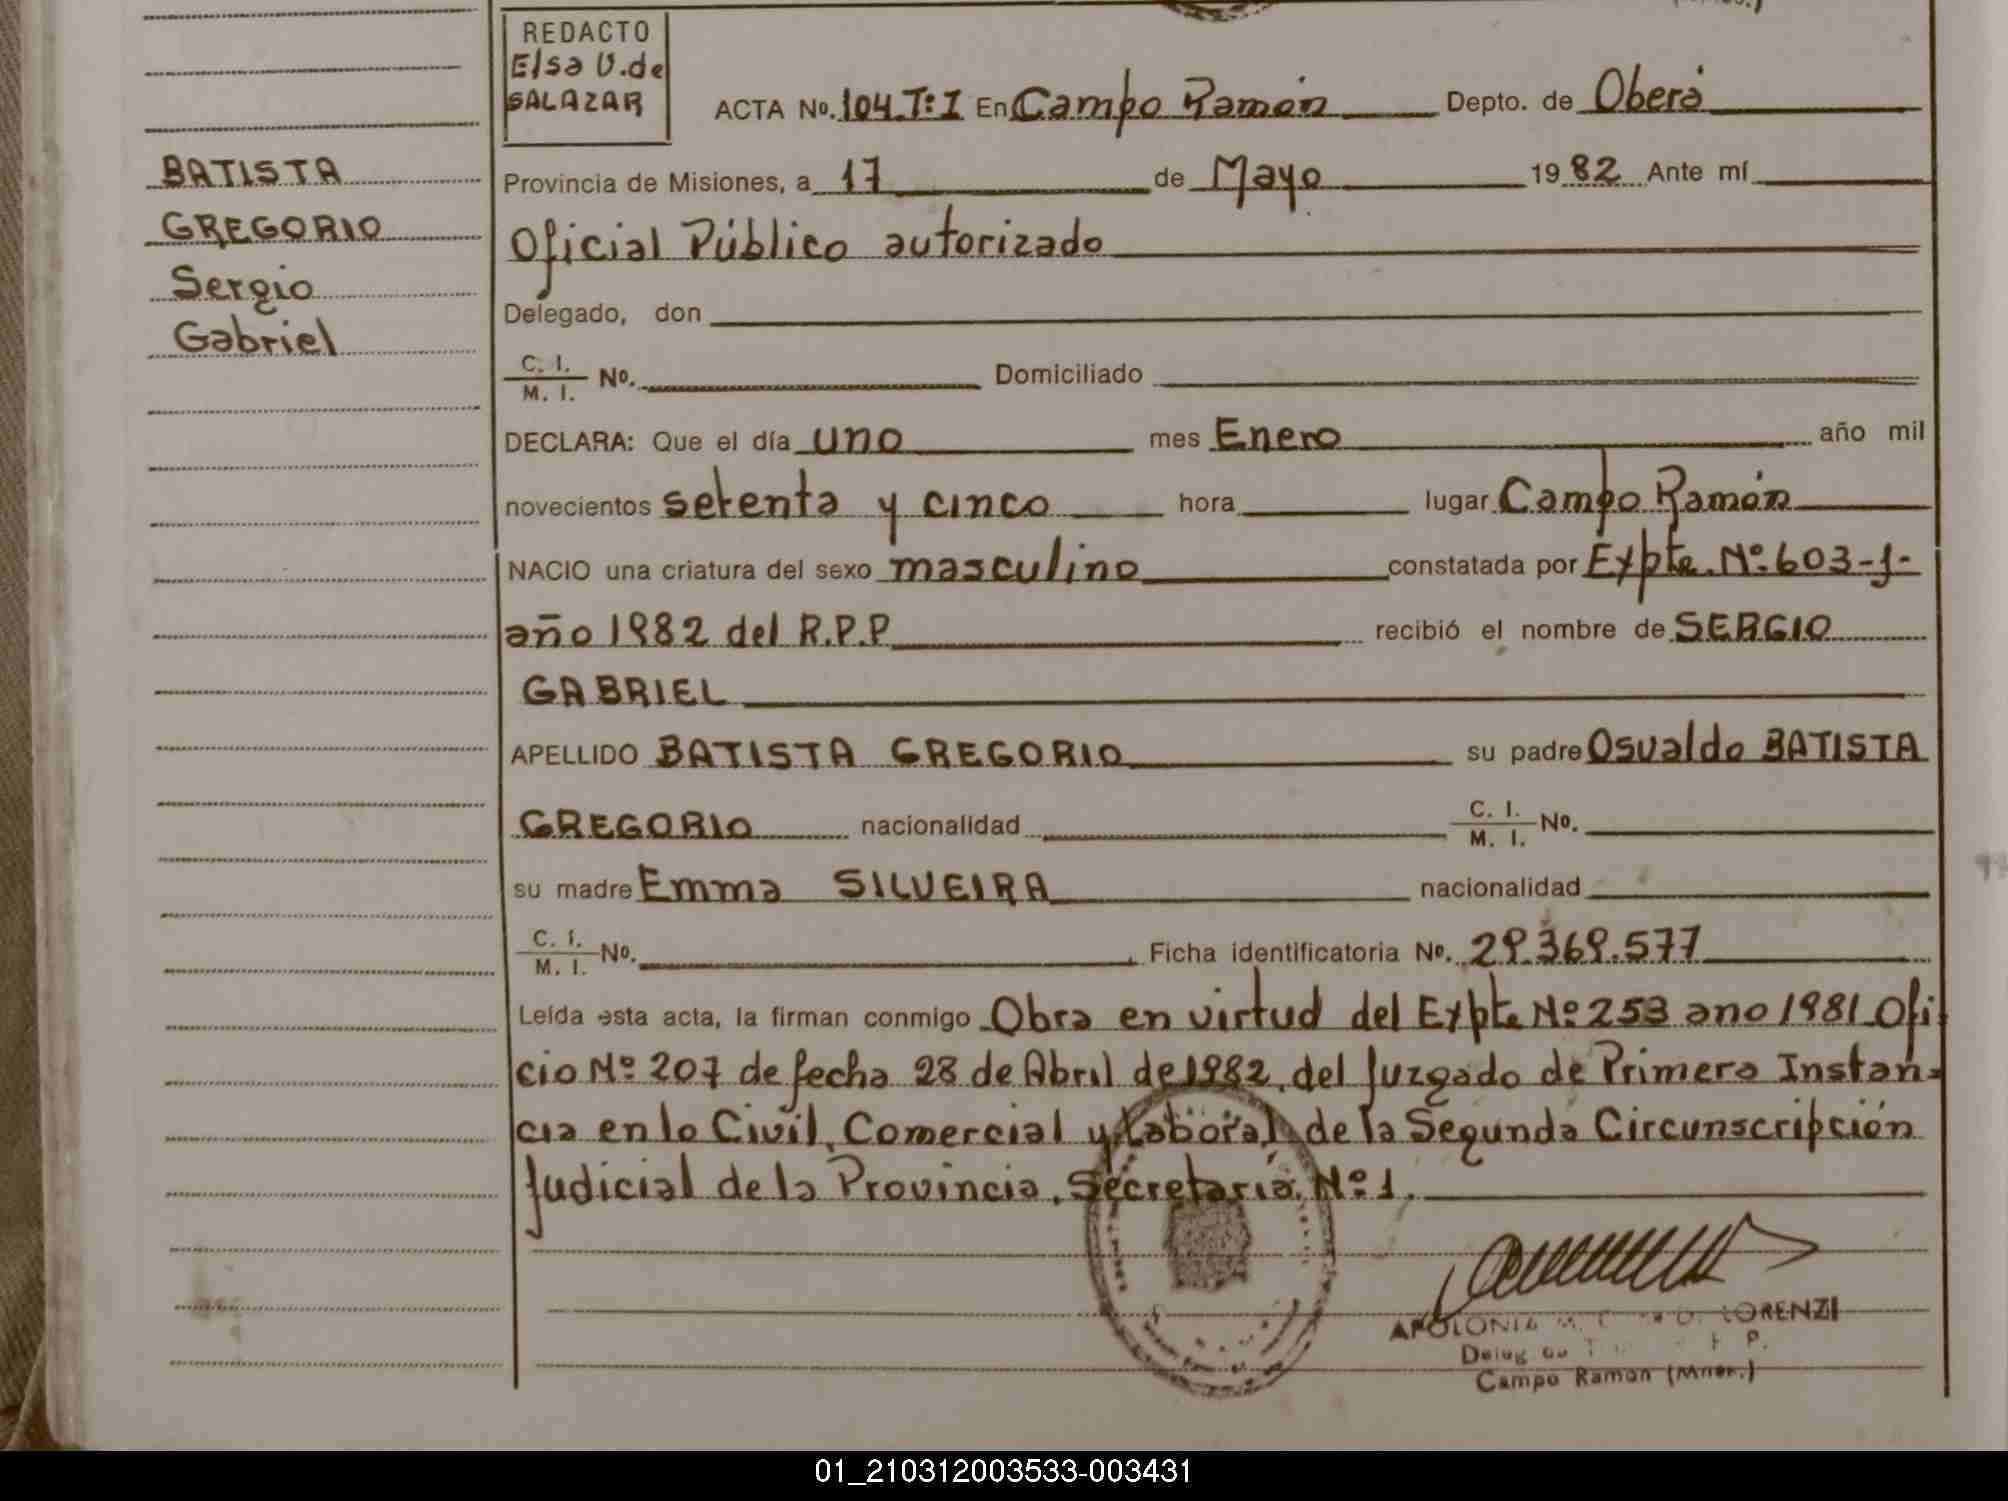 REDACTO
Elsa V. de
SALAZAR
ACTA No. 104. T: I En Campo Ramón Depto. de Oberá
BATISTA
GREGORIO
Sergio
Gabriel
Provincia de Misiones, a 17 de Mayo 1982 Ante mí
Oficial Público autorizado
Delegado, don
C. I. / M. I. No. Domiciliado
DECLARA: Que el día uno mes Enero año mil
novecientos setenta y cinco hora lugar Campo Ramón
NACIO una criatura del sexo masculino constatada por Expte. Nº 603-J-
año 1982 del R.P.P recibió el nombre de SERGIO
GABRIEL
APELLIDO BATISTA GREGORIO su padre Osvaldo BATISTA
GREGORIO nacionalidad C. I. / M. I. No.
su madre Emma SILVEIRA nacionalidad
C. I. / M. I. No. Ficha identificatoria No. 29.369.577
Leída esta acta, la firman conmigo Obra en virtud del Expte Nº 253 ano 1981 Ofi
cio Nº 207 de fecha 28 de Abril de 1982, del Juzgado de Primera Instan=
cia en lo Civil, Comercial y Laboral, de la Segunda Circunscripción
Judicial de la Provincia, Secretaría Nº 1.
APOLONIA M. LORENZI
Campo Ramon (Mnes.)
01_210312003533-003431